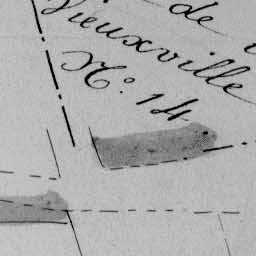 de
Vieuxville
N.º 14